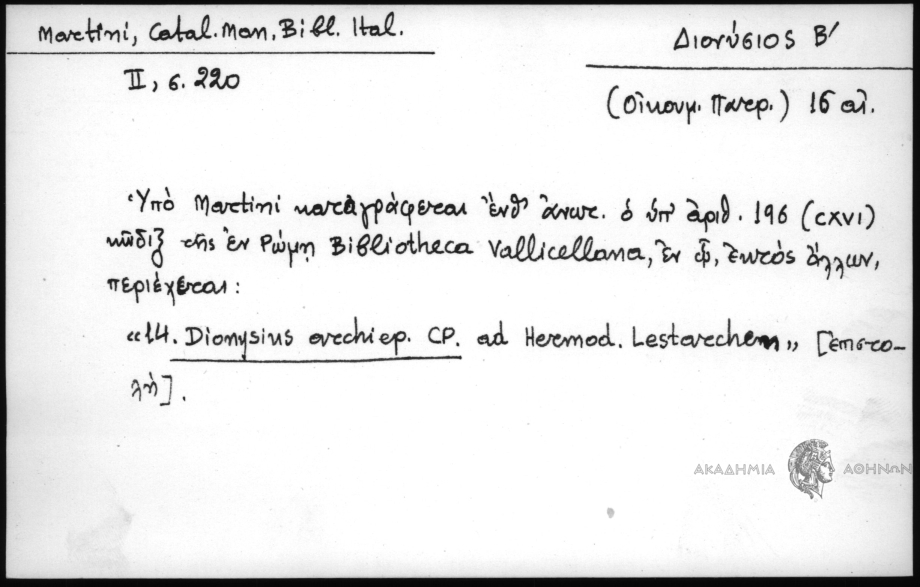 Martini, Catal. Man. Bibl. Ital.
II, σ. 220
Διονύσιος Β'
(Οἰκουμ. Πατρ.) 16 αἰ.
Ὑπὸ Martini καταγράφεται ἔνθ' ἀνωτ. ὁ ὑπ' ἀριθ. 196 (CXVI)
κῶδιξ τῆς ἐν Ρώμῃ Bibliotheca Vallicellana, ἐν ᾧ, ἐκτὸς ἄλλων,
περιέχεται:
«14. Dionysius archiep. CP. ad Hermod. Lestarchem» [ἐπιστο-
λὴ].
ΑΚΑΔΗΜΙΑ ΑΘΗΝΩΝ